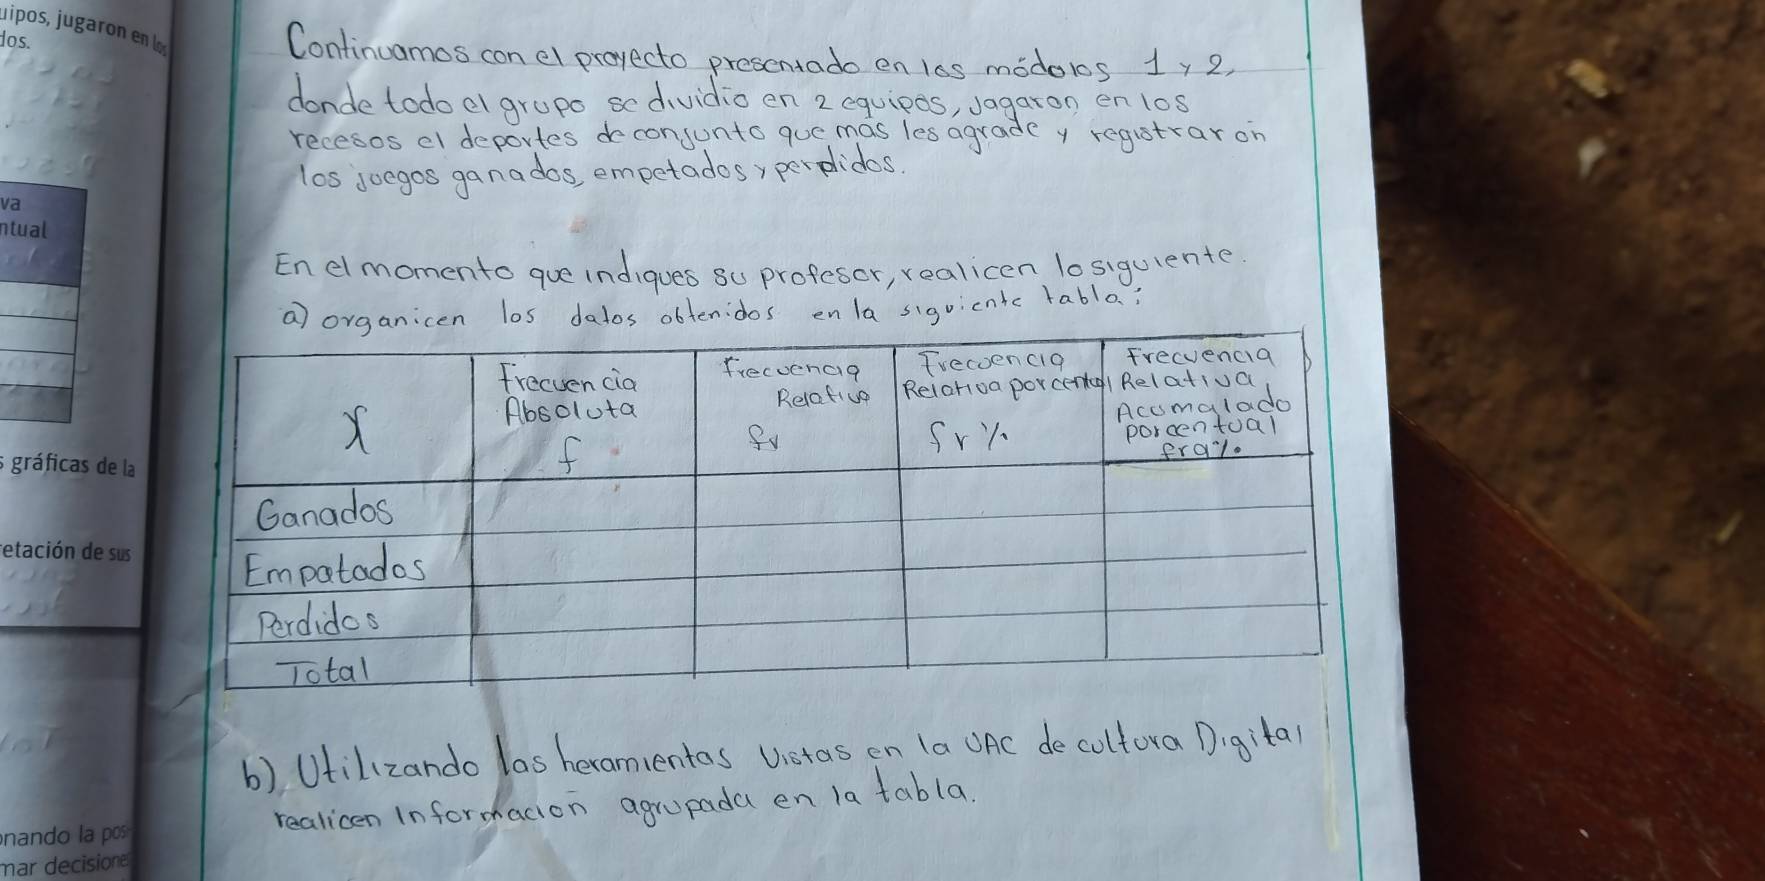 uipos, jugaron en los
dos.
va
ntual
s gráficas de la
etación de sus
onando la pos
mar decisione
Continuamos con el proyecto presentado en los módolos 1 y 2,
donde todo el grupo se dividio en 2 equipos, jagaron en los
recesos el deportes de conjunto que mas les agrade y registraron
los juegos ganados, empetados y perdidos.
En el momento que indiques su profesor, realicen lo siguiente.
a) organicen los datos obtenidos en la siguiente tabla:
X
Frecuencia
Absoluta
f
Frecuencia
Relativa
fr
Frecuencia
Relativa porcentual
fr %
Frecuencia
Relativa
Acomalado
porcentual
fra%
Ganados
Empatados
Perdidos
Total
b) Utilizando las heramientas vistas en la UAC de cultura Digital
realicen Informacion agrupada en la tabla.